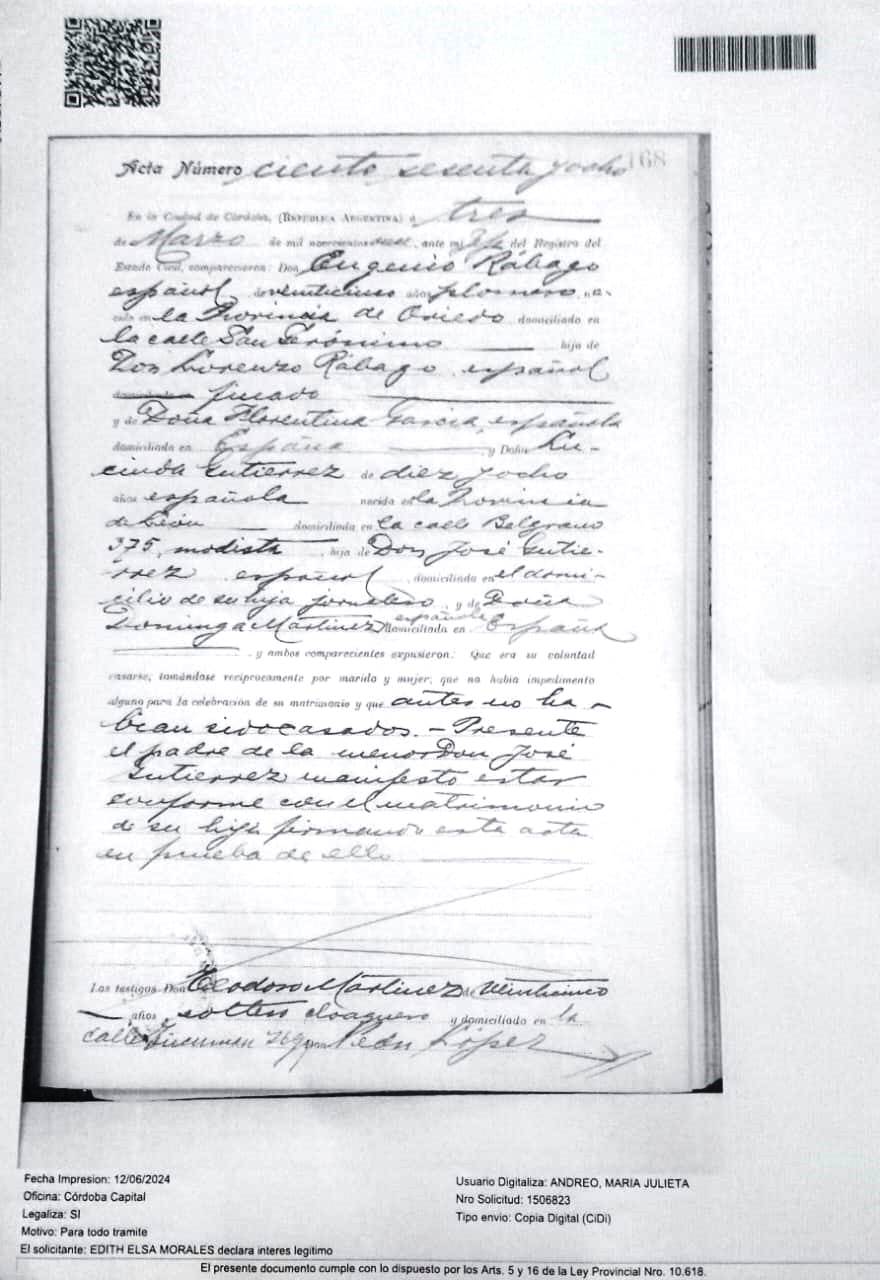 168
Acta Número ciento sesenta y ocho
En la Ciudad de Córdoba, (REPÚBLICA ARGENTINA) á tres
de Marzo de mil novecientos ante mí del Registro del
Estado Civil, comparecieron: Don Eugenio Rábago
español de veinticinco años plomero, na-
cido en la Provincia de Oviedo domiciliado en
la calle San Gerónimo hijo de
Don Lorenzo Rábago español
finado
y de Doña Florentina Garcia, española
domiciliada en España y Doña Lu-
cinda Gutierrez de diez y ocho
años española nacida en la Provincia
de León domiciliada en la calle Belgrano
375, modista, hija de Don José Gutie-
rrez español domiciliado en el domi-
cilio de su hija jornalero, y de Doña
Dominga Martinez española domiciliada en España
, y ambos comparecientes expusieron: Que era su voluntad
casarse, tomándose recíprocamente por marido y mujer, que no había impedimento
alguno para la celebración de su matrimonio y que antes no ha-
bian sido casados. - Presente
el padre de la menor Don José
Gutierrez manifestó estar
conforme con el matrimonio
de su hija firmando esta acta
en prueba de ello
Los testigos Don Teodoro Martinez de veinticinco
años, soltero cloaquero y domiciliado en la
calle Tucuman Peón López
Fecha Impresion: 12/06/2024
Oficina: Córdoba Capital
Legaliza: SI
Motivo: Para todo tramite
El solicitante: EDITH ELSA MORALES declara interes legitimo
Usuario Digitaliza: ANDREO, MARIA JULIETA
Nro Solicitud: 1506823
Tipo envio: Copia Digital (CiDi)
El presente documento cumple con lo dispuesto por los Arts. 5 y 16 de la Ley Provincial Nro. 10.618.